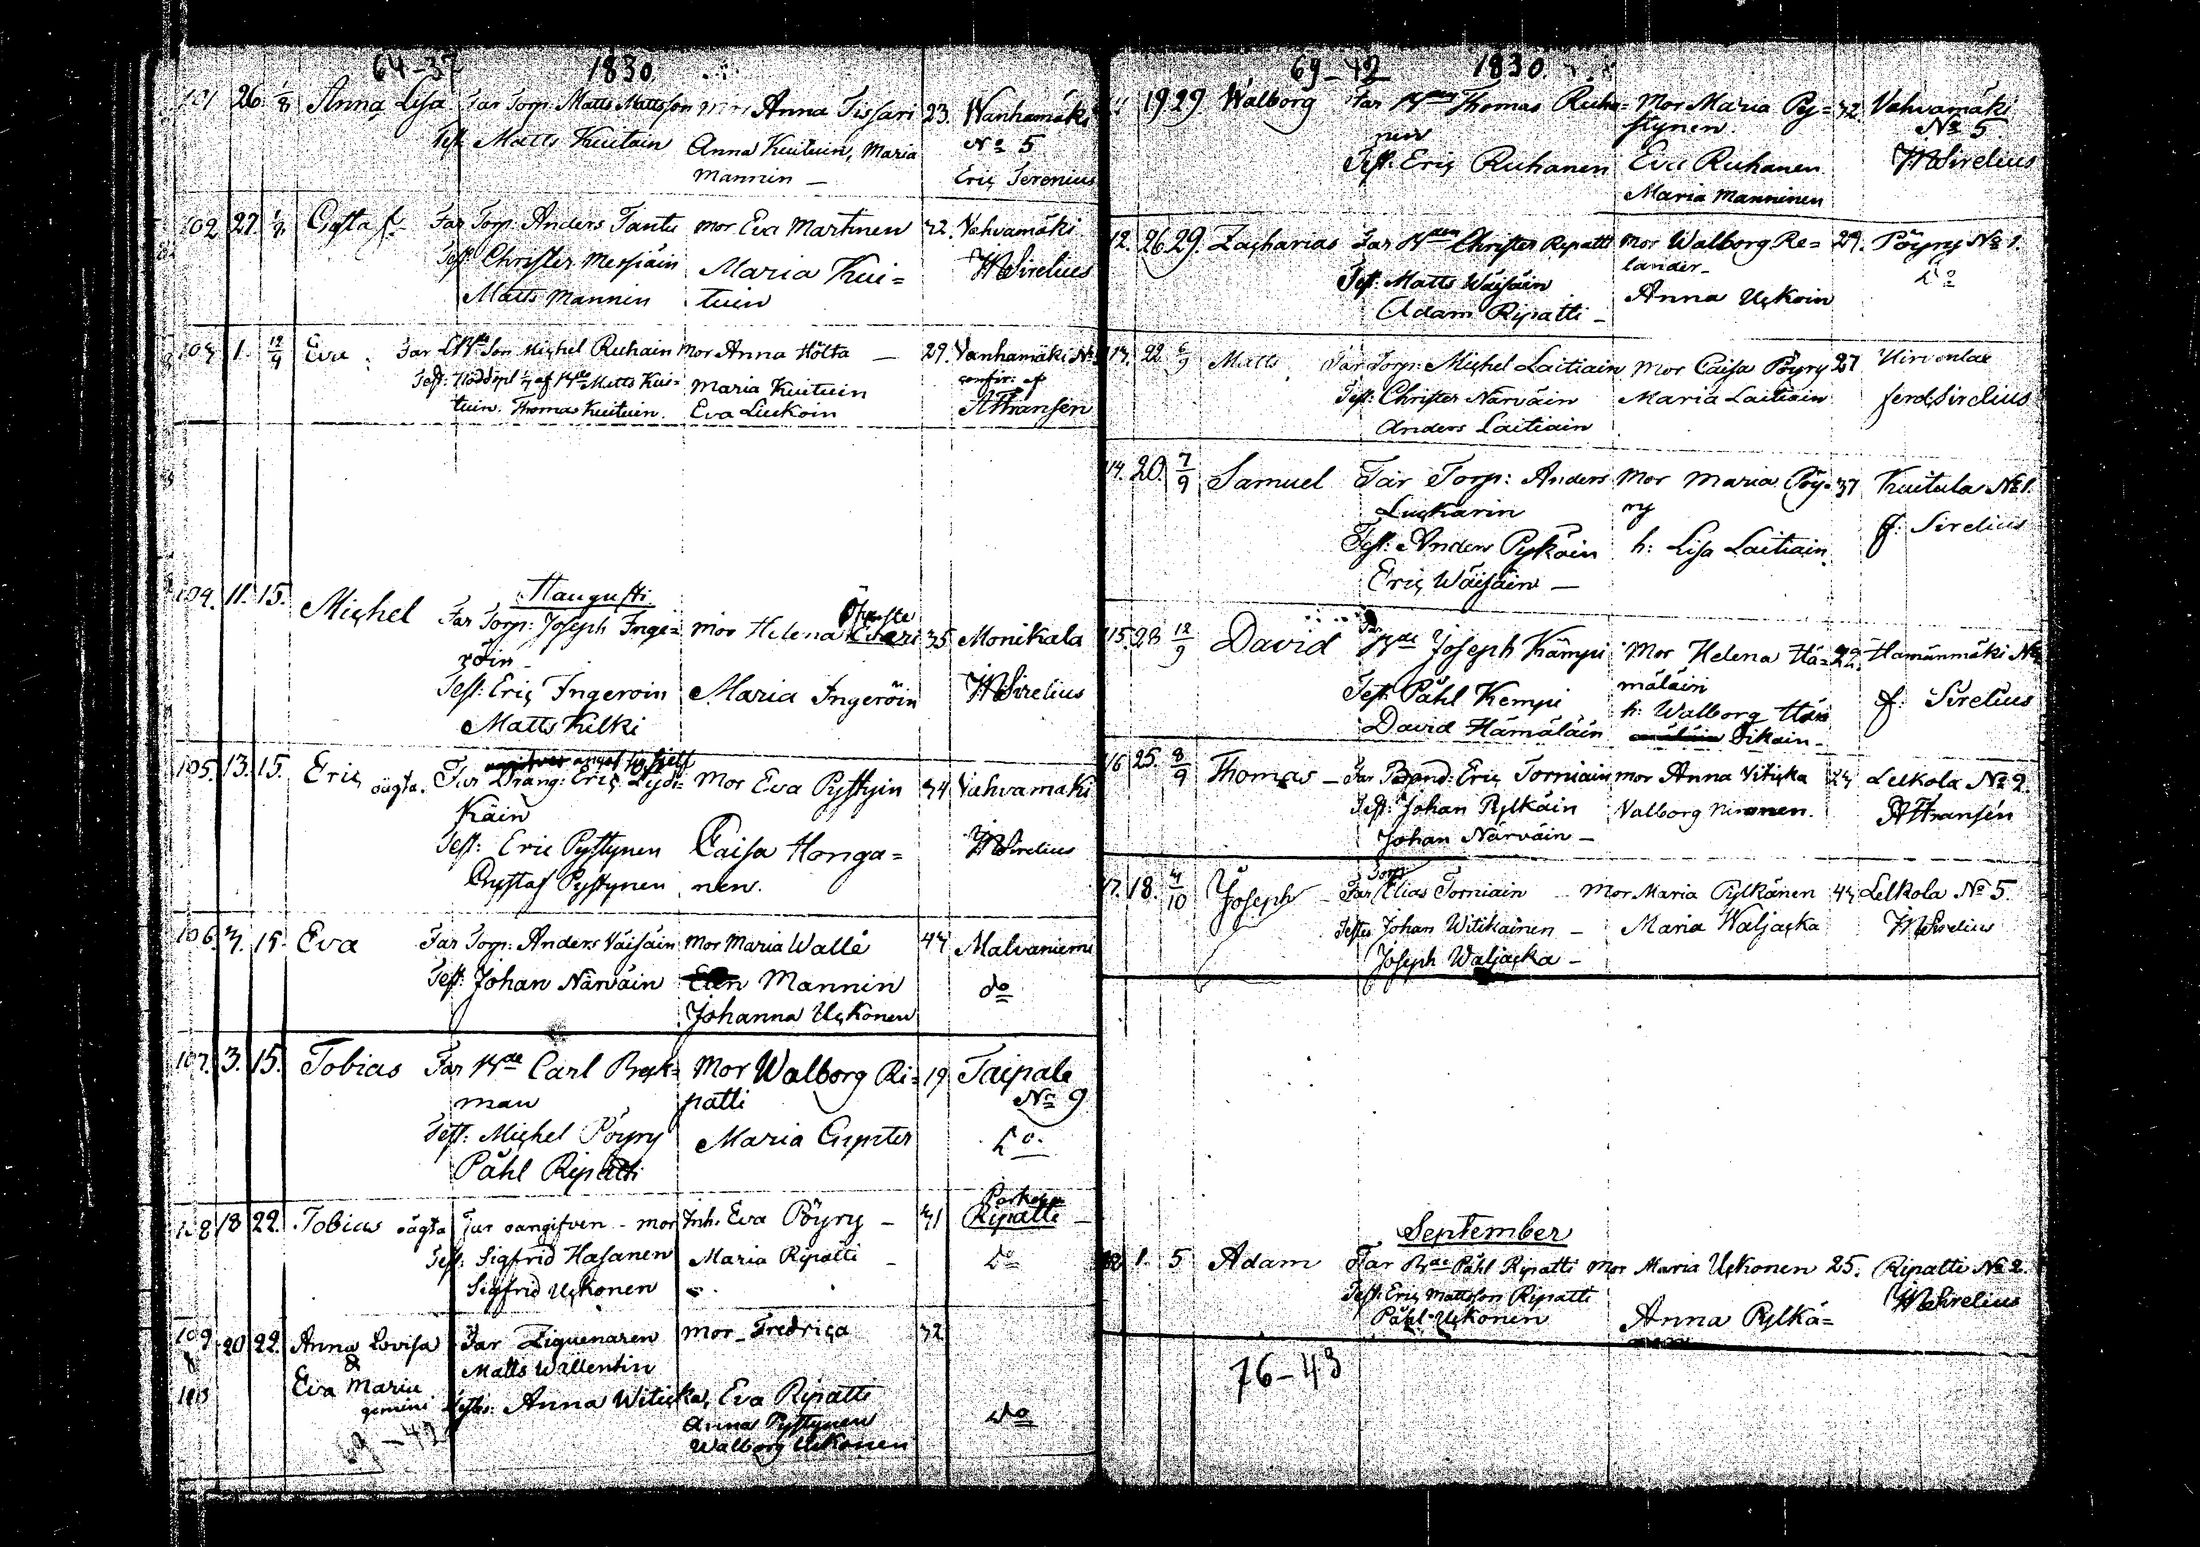 64-37 1830.
101 26. 1/8 Anna Lisa Far Torp. Matts Mattsson Mor Anna Tissari 23. Wanhamäki
Test. Matts Kuitain Anna Kuituin, Maria No 5
Mannin — Eric Ferenius
102 27. Gustaf Far Torp. Anders Tantu mor Eva Martinen 32. Vahvamäki
Test. Christer Messiäin Maria Kui= WSirelius
Matts Mannin tuin
103 1. 12/9 Eva Far Son Michel Ruhain Mor Anna Hölta — 29. Vanhamäki No
Test: af Matts Kui= Maria Kuituin confir: af
tuin. Thomas Kuituin. Eva Luckoin AFransén
Haugusti
104. 11. 15. Michel Far Torp: Joseph Inge= mor Helena 35 Monikala
röin
Test: Eric Ingeroin Maria Ingeröin WSirelius
Matts Kilki
105. 13. 15. Eric oägta. Far Dräng: Eric Lydi= Mor Eva Pystyin 34 Vahvamäki
Käin
Test: Eric Pystynen Caisa Honga= WSirelius
Gustaf Pystynen nen.
106. 7. 15. Eva Far Torp: Anders Väisäin Mor Maria Walle 44 Malvaniemi
Test: Johan Närväin Mannin do
Johanna Uckonen
107. 3. 15. Tobias Far Carl Beck= Mor Walborg Ri= 19 Taipale
man patti No 9
Test: Michel Pöyry Maria Gunter Do
Påhl Ripatti
108 18 22. Tobias oägta Far oangifven - mor Inh. Eva Pöyry — 31 Ripatti
Test: Sigfrid Hasanen Maria Ripatti — Do
Sigfrid Uckonen
109 20 22. Anna Lovisa Far Ziguenaren mor Fredrica 32
& Matts Wallentin
Eva Maria
gemini Testes: Anna Witicka, Eva Ripatti
Anna Pystynen do
69-42 Walborg Uckonen
69-42 1830.
19 29. Walborg Far Thomas Ruha= Mor Maria Py= 32. Vahvamäki
nen stynen. No 5
Test: Eric Ruhanen Eva Ruhanen WSirelius
Maria Manninen
12. 26 29. Zacharias Far Christer Ripatti Mor Walborg Re= 29. Pöyry No 1.
lander
Test: Matts Wäisäin Anna Uckoin Do
Adam Ripatti —
13. 22 6/9 Matts Far Torp: Michel Laitiain Mor Caisa Pöyry 27 Hirvonlax
Test: Christer Närväin Maria Laitiain ferd. Sirelius
Anders Laitiain
14. 20. 7/9 Samuel Far Torp: Anders Mor Maria Pöy= 37 Kuitula No 1.
Luckarin ry
Test: Anders Pylkäin h: Lisa Laitiain. f: Sirelius
Eric Wäisäin —
15. 28 12/9 David Joseph Kämpi Mor Helena Hä= 22. Hamänmäki No
mäläin
Test: Påhl Kempi h: Walborg f: Sirelius
David Hämäläin Sikain
16 25. 8/9 Thomas — Far Bond: Eric Torniain mor Anna Viticka 24 Lelkola No 2.
Test: Johan Pylkäin Valborg Nironen. AFransén
Johan Närväin —
Torp
17. 18. 4/10 Joseph — Far Elias Torniain Mor Maria Pylkänen 43 Lelkola No 5.
Testes Johan Witikainen — Maria Waljacka WSirelius
Joseph Waljacka —
September
1. 5 Adam Far Påhl Ripatti Mor Maria Uckonen 25. Ripatti No 2.
Test: Eric Mattsson Ripatti WSirelius
Påhl Uckonen Anna Pylkä=
76-43